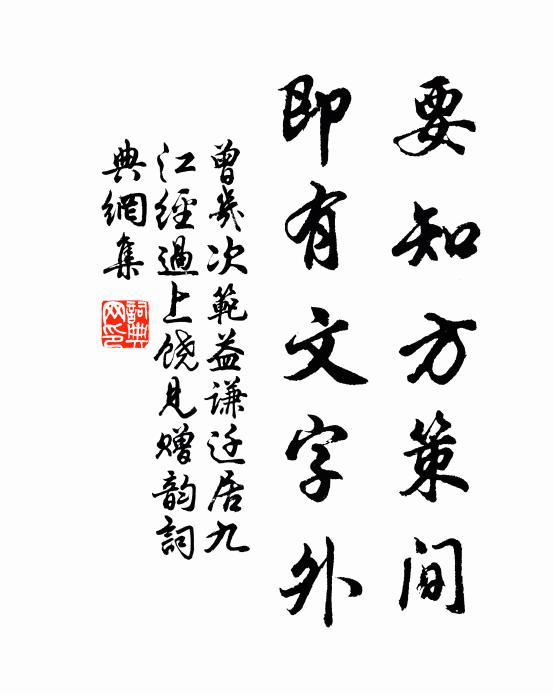 要知方策间
即有文字外
曾幾次範益谦迁居九
江經過上饶見赠韵詞
典網集
詞典
网印